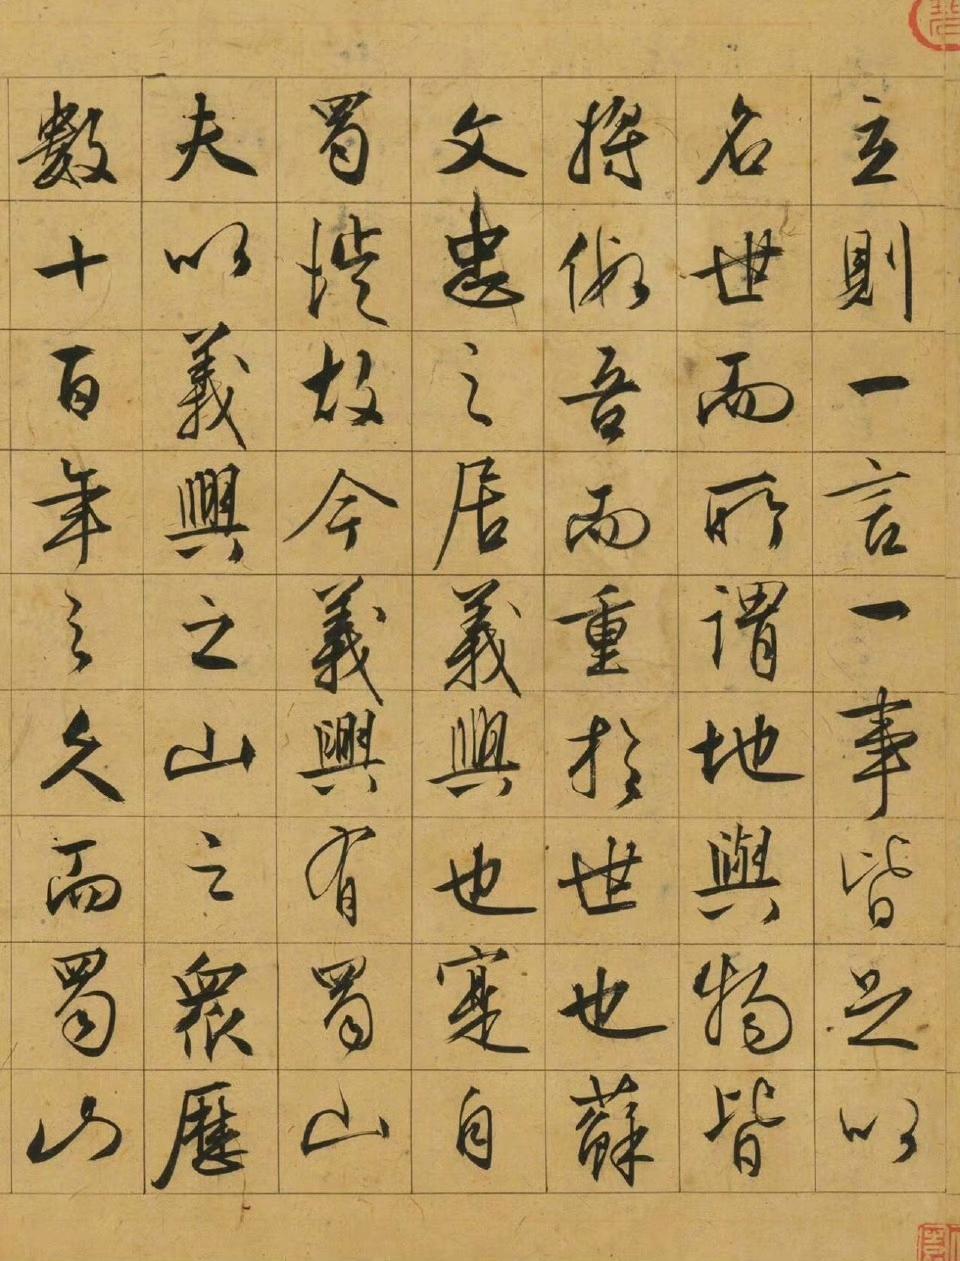 立則一言一事皆足以
名世而所謂地與物皆
將假吾而重於世也蘇
文忠之居義興也寔自
蜀徙故今義興有蜀山
夫以義興之山之衆歷
數十百年之久而蜀山